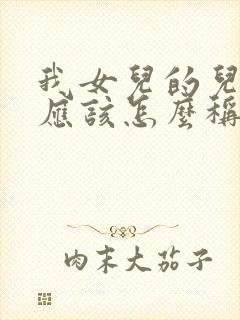 我女兒的兒
應該怎麼稱
肉末大茄子